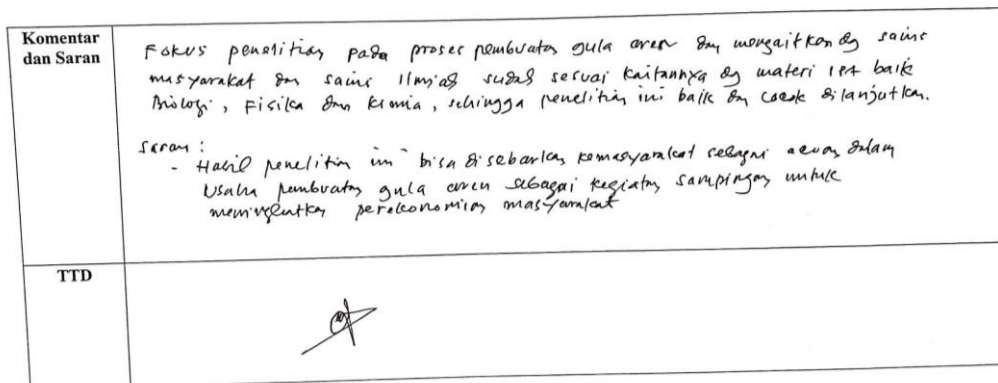 Komentar
dan Saran
Fokus penelitian pada proses pembuatan gula aren dan mengaitkan dg sains
masyarakat dan sains ilmiah sudah sesuai kaitannya dg materi IPA baik
Biologi, Fisika dan Kimia, sehingga penelitian ini baik dan cocok dilanjutkan.
Saran :
- Hasil penelitian ini bisa disebarkan kemasyarakat sebagai acuan dalam
Usaha pembuatan gula aren sebagai kegiatan sampingan untuk
meningkatkan perekonomian masyarakat
TTD